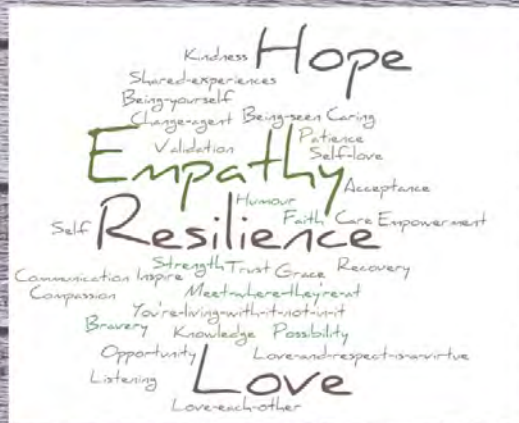 Kindness Hope
Shared-experiences
Being-yourself
Change-agent Being-seen Caring
Validation Patience
Self-love
Empathy Acceptance
Humour
Self Resilience Faith Care Empowerment
Strength Trust Grace Recovery
Communication Inspire
Compassion Meet-where-they're-at
You're-living-with-it-not-in-it
Bravery Knowledge Possibility
Opportunity Love-and-respect-is-a-virtue
Listening Love
Love-each-other